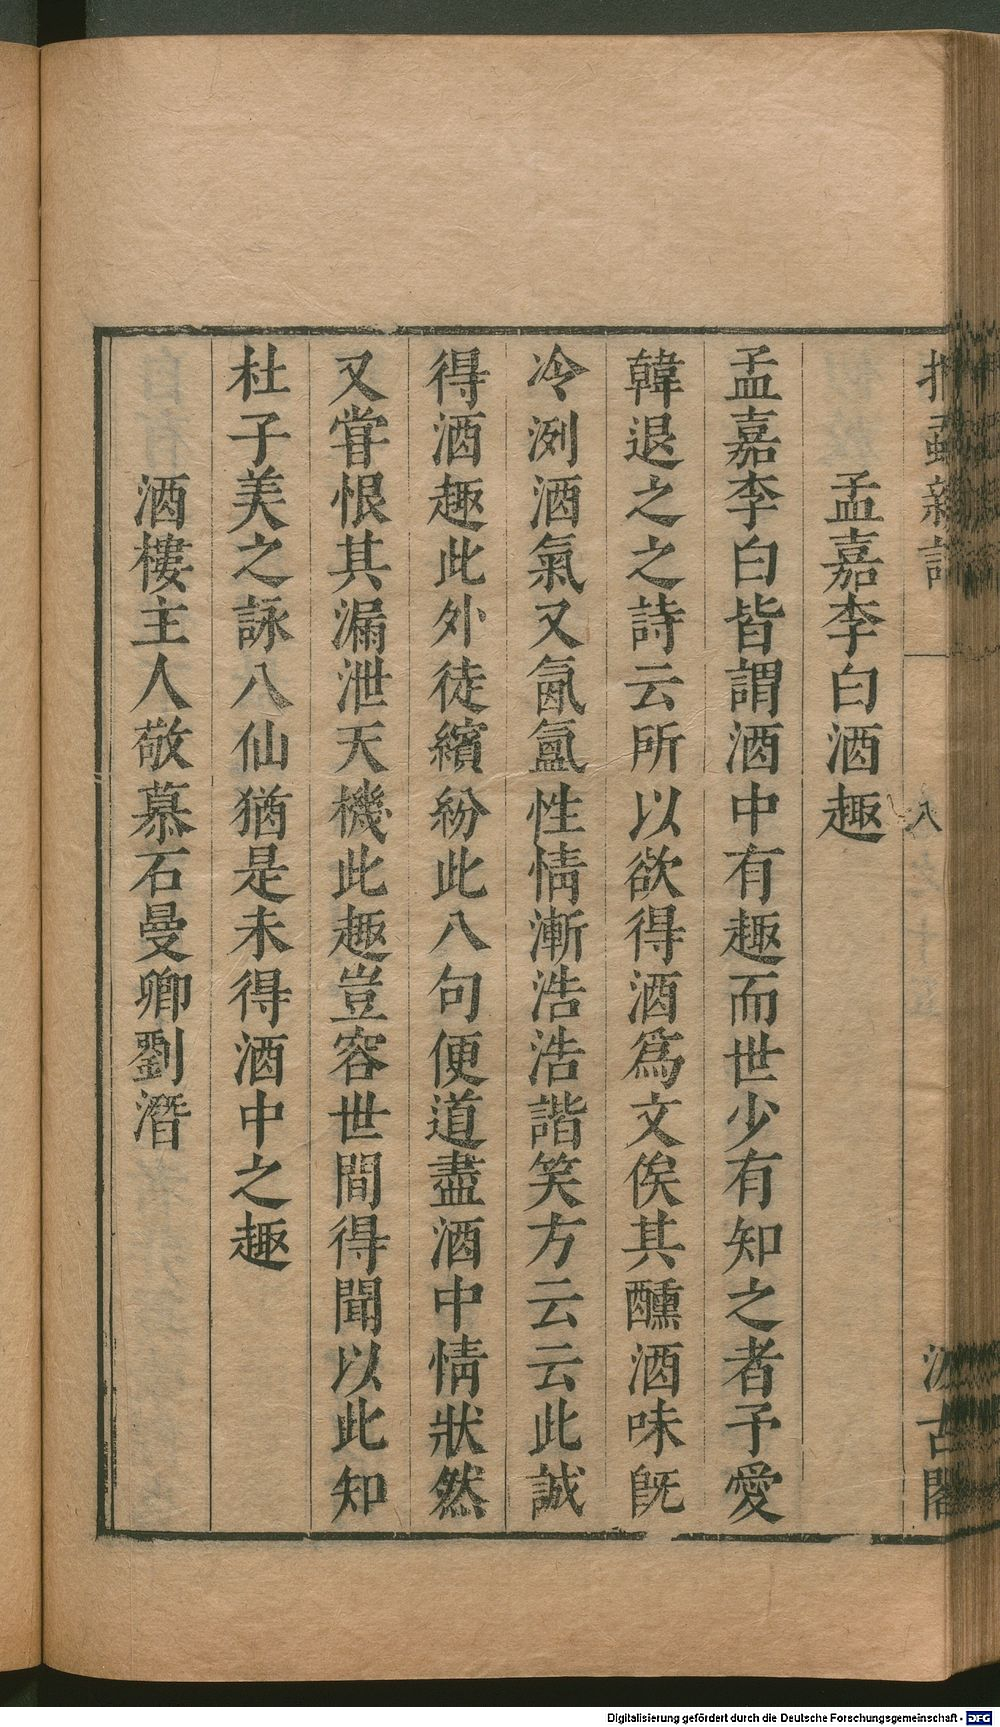 捫蝨新話
八
汲古閣
孟嘉李白酒趣
孟嘉李白皆謂酒中有趣而世少有知之者予愛
韓退之之詩云所以欲得酒爲文俟其醺酒味旣
冷冽酒氣又氤氳性情漸浩浩諧笑方云云此誠
得酒趣此外徒繽紛此八句便道盡酒中情狀然
又嘗恨其漏泄天機此趣豈容世間得聞以此知
杜子美之詠八仙猶是未得酒中之趣
酒樓主人敬慕石曼卿劉潛
Digitalisierung gefördert durch die Deutsche Forschungsgemeinschaft - DFG